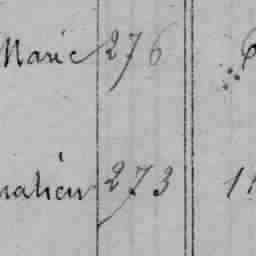 Marie 276
mahieu 273 11